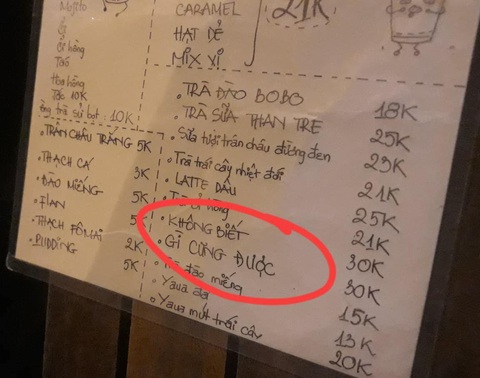 Mojito
Ổi
Ổi hồng
Táo
Hoa hồng
Táo 10K
ống trà sủi bọt : 10K
CARAMEL
HẠT DẺ
MIX VỊ
21K
• TRÀ ĐÀO BOBO 18K
• TRÀ SỮA THAN TRE 25K
• Sữa tươi trân châu đường đen 23K
• Trà trái cây nhiệt đới 21K
• LATTE DÂU 25K
ổi hồng 21K
• KHÔNG BIẾT 30K
• GÌ CŨNG ĐƯỢC 30K
đào miếng 15K
• Yaua đá 13K
• Yaua mứt trái cây 20K
• TRÂN CHÂU TRẮNG 5K
• THẠCH CÁ 3K
• ĐÀO MIẾNG 5K
• FLAN 5K
• THẠCH PHÔ MAI 2K
• PUDDING 5K